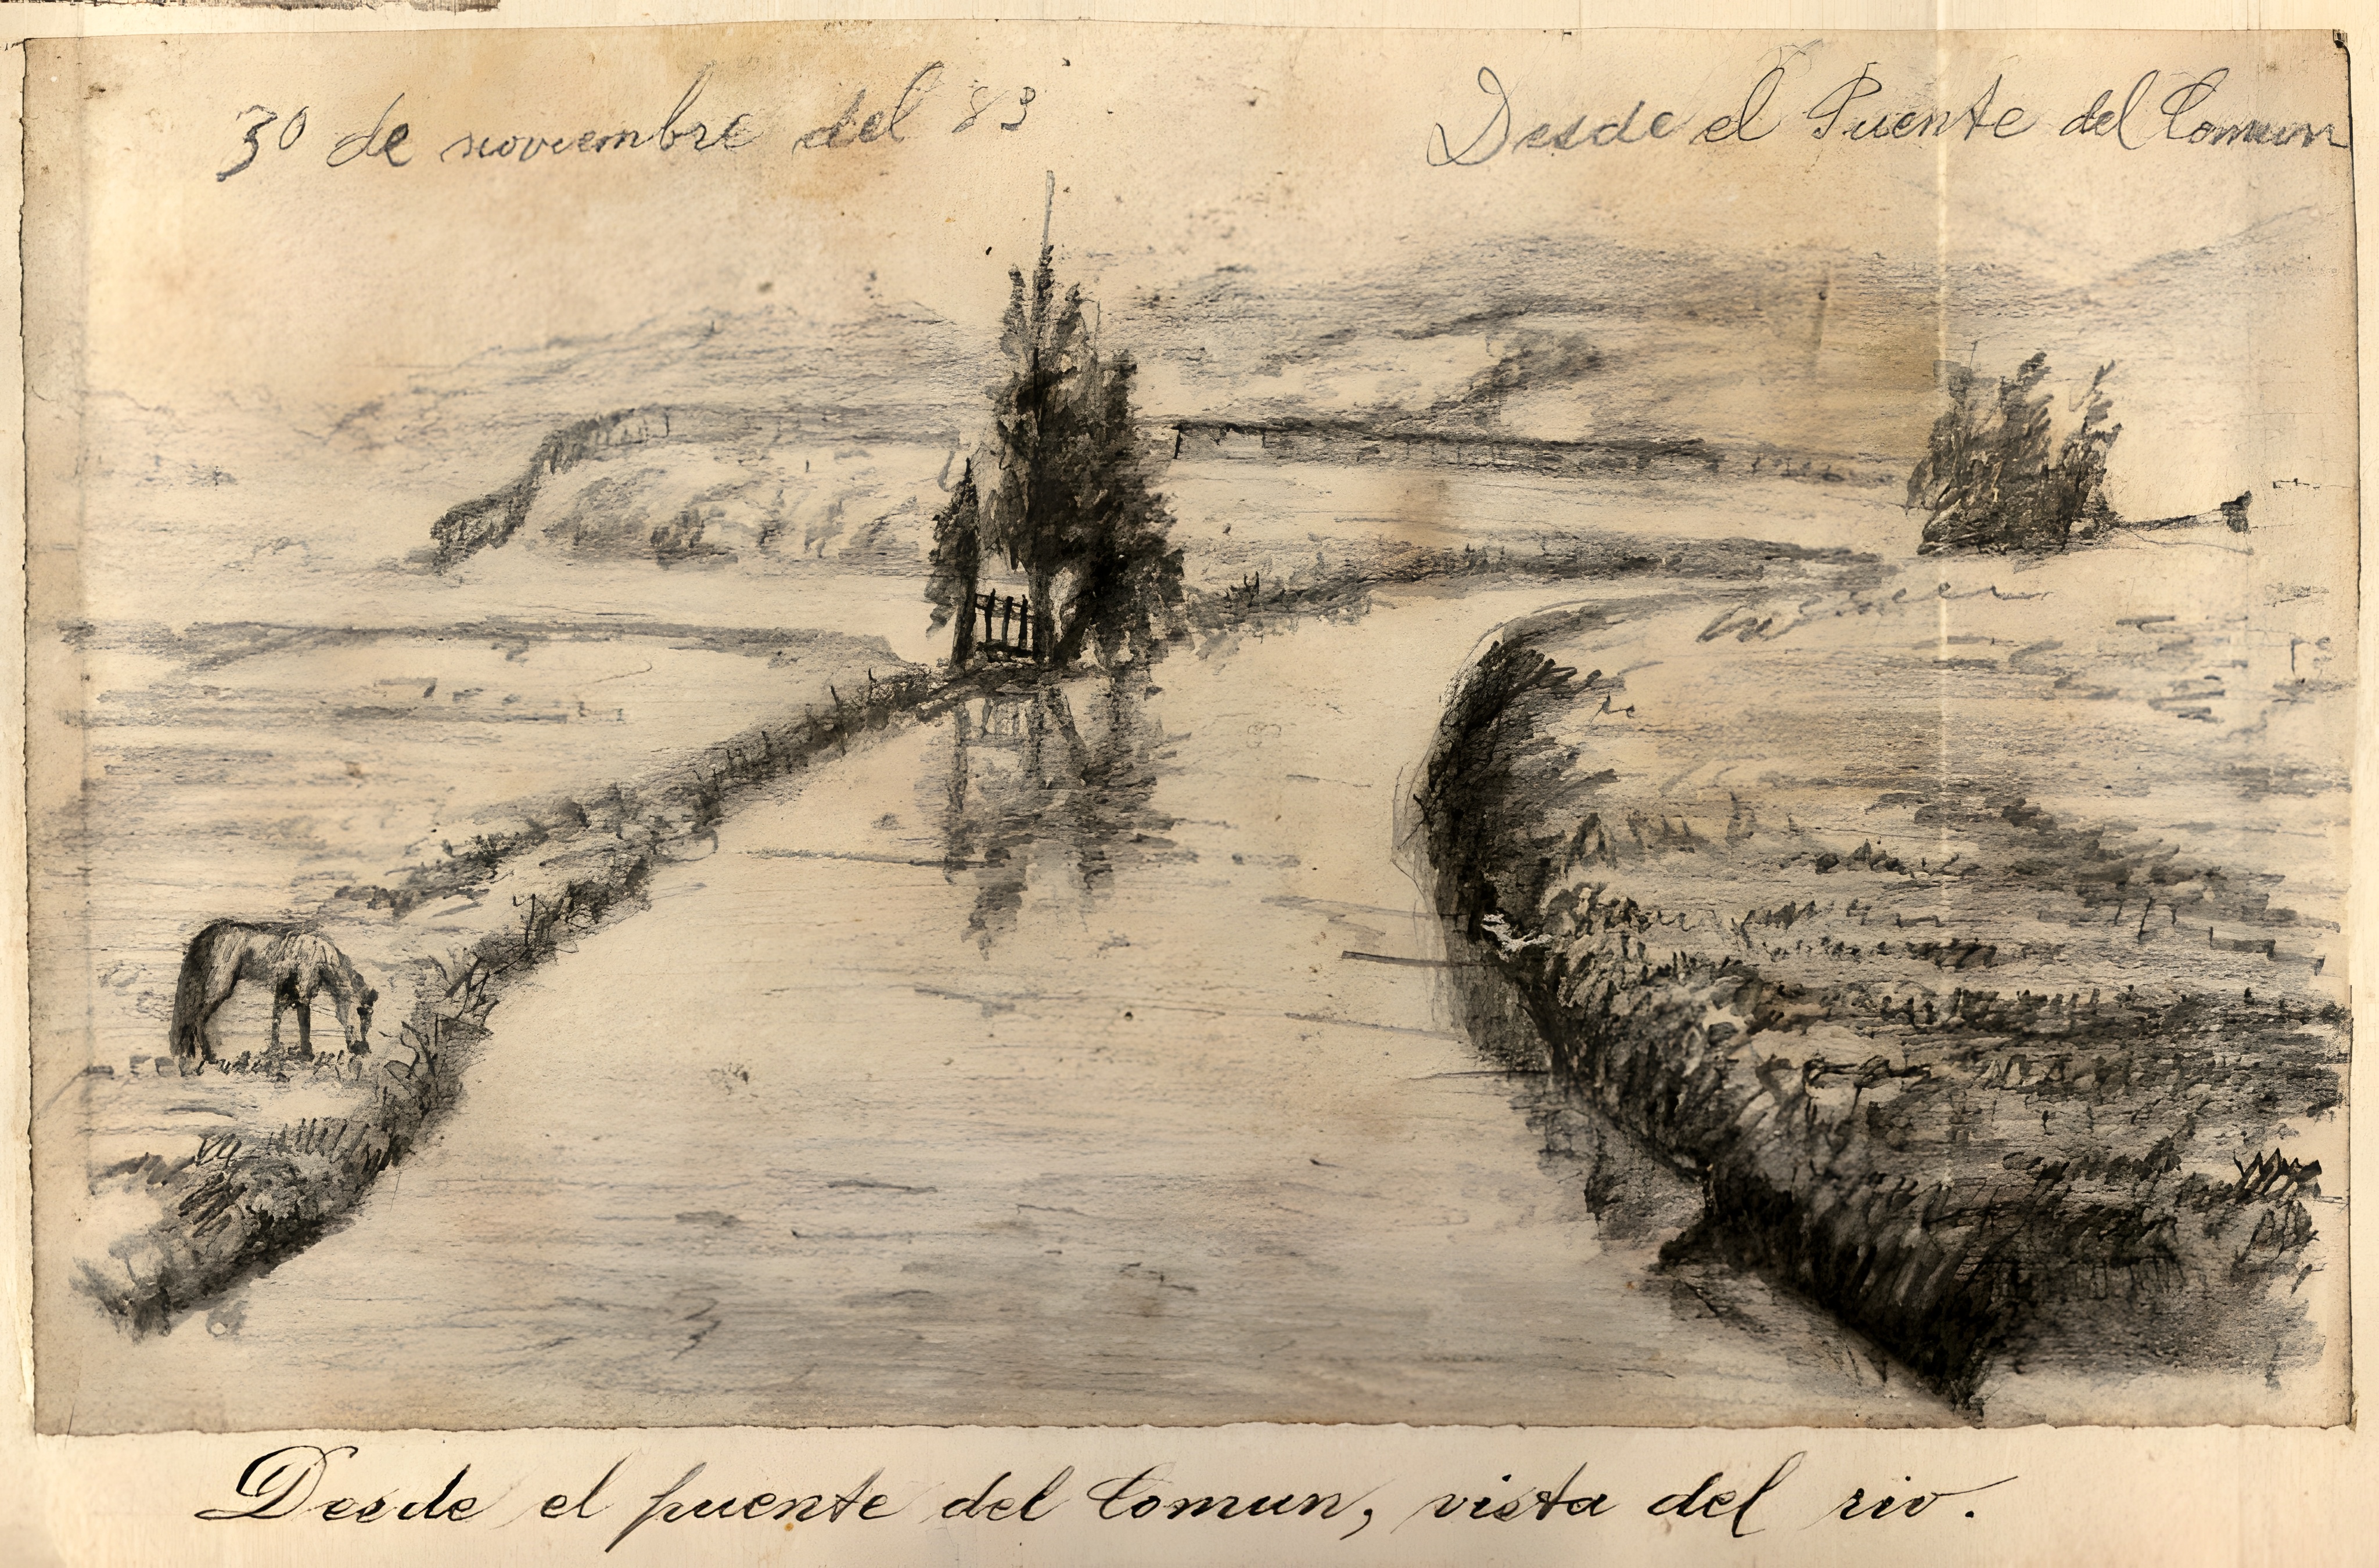 30 de noviembre del 83
Desde el Puente del Comun
Desde el puente del Comun, vista del rio.